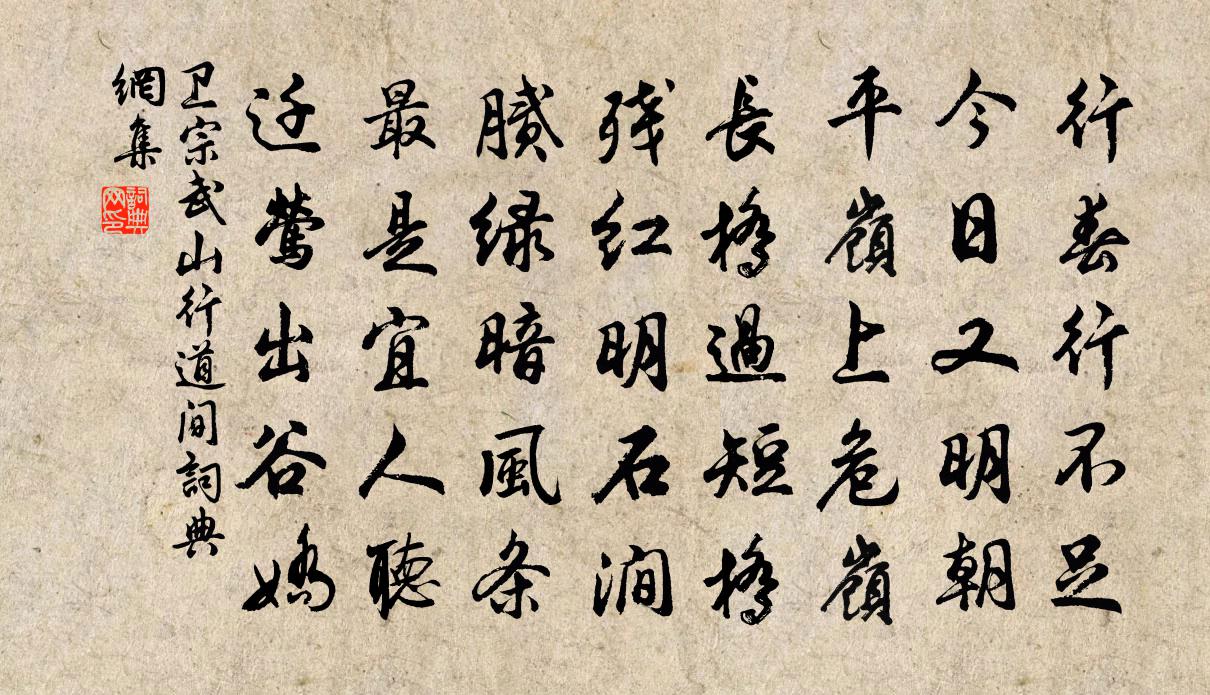 行春行不足
今日又明朝
平嶺上危嶺
長橋過短橋
残红明石澗
膩绿暗風条
最是宜人聽
迁鶯出谷嬌
卫宗武山行道间詞典
網集
詞典
网印